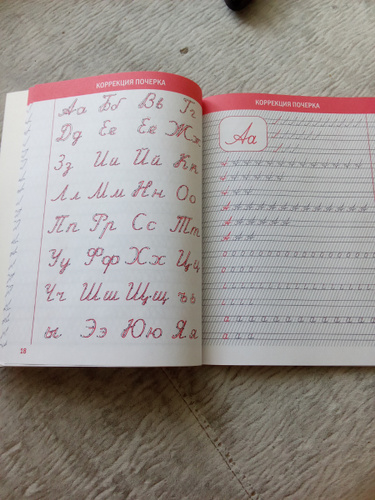 КОРРЕКЦИЯ ПОЧЕРКА
Аа Бб Вв Гг
Дд Ее Ёё Жж
Зз Ии Йй Кк
Лл Мм Нн Оо
Пп Рр Сс Тт
Уу Фф Хх Цц
Чч Шш Щщ ъь
ы Ээ Юю Яя
18
КОРРЕКЦИЯ ПОЧЕРКА
Аа